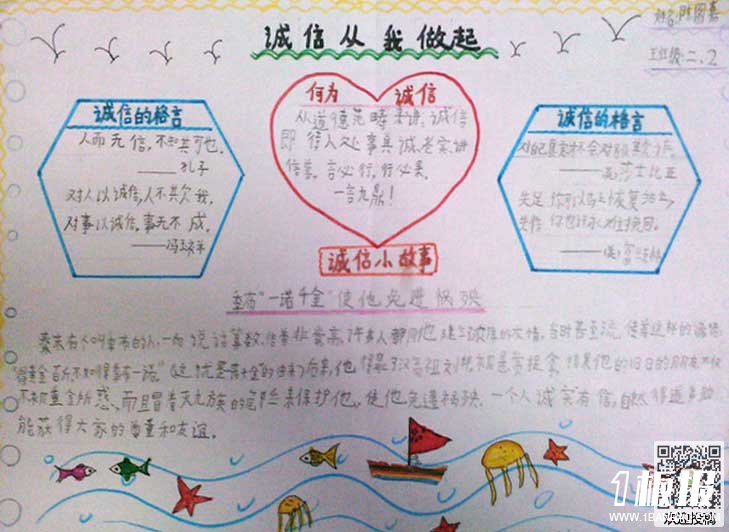 诚信从我做起
姓名:陈
班级:二、2
诚信的格言
人而无信,不知其可也.
——孔子
对人以诚信,人不其欠我,
对事以诚信,事无不成.
——冯玉祥
何为 诚信
从道德范畴来讲,诚信
即待人处事真诚、老实、讲
信誉,言必行,行必果,
一言九鼎!
诚信的格言
莎士比亚
失足,你可以马上恢复站立,
失信,你也许永难挽回.
诚信小故事
季布"一诺千金"使他免遭祸殃
秦末有个叫季布的人,一向说话算数,信誉非常高,许多人都同他建立起浓厚的友情.当时甚至流传着这样的谚语:
"得黄金百斤,不如得季布一诺."(这就是一诺千金的由来)后来,他得罪了汉高祖刘邦,被悬赏捉拿.结果他的旧日的朋友不仅
不被重金所惑,而且冒着灭九族的危险来保护他,使他免遭祸殃.一个人诚实有信,自然得道多助,
能获得大家的尊重和友谊.
1板报
WWW.1BANBAO.COM
欢迎投稿